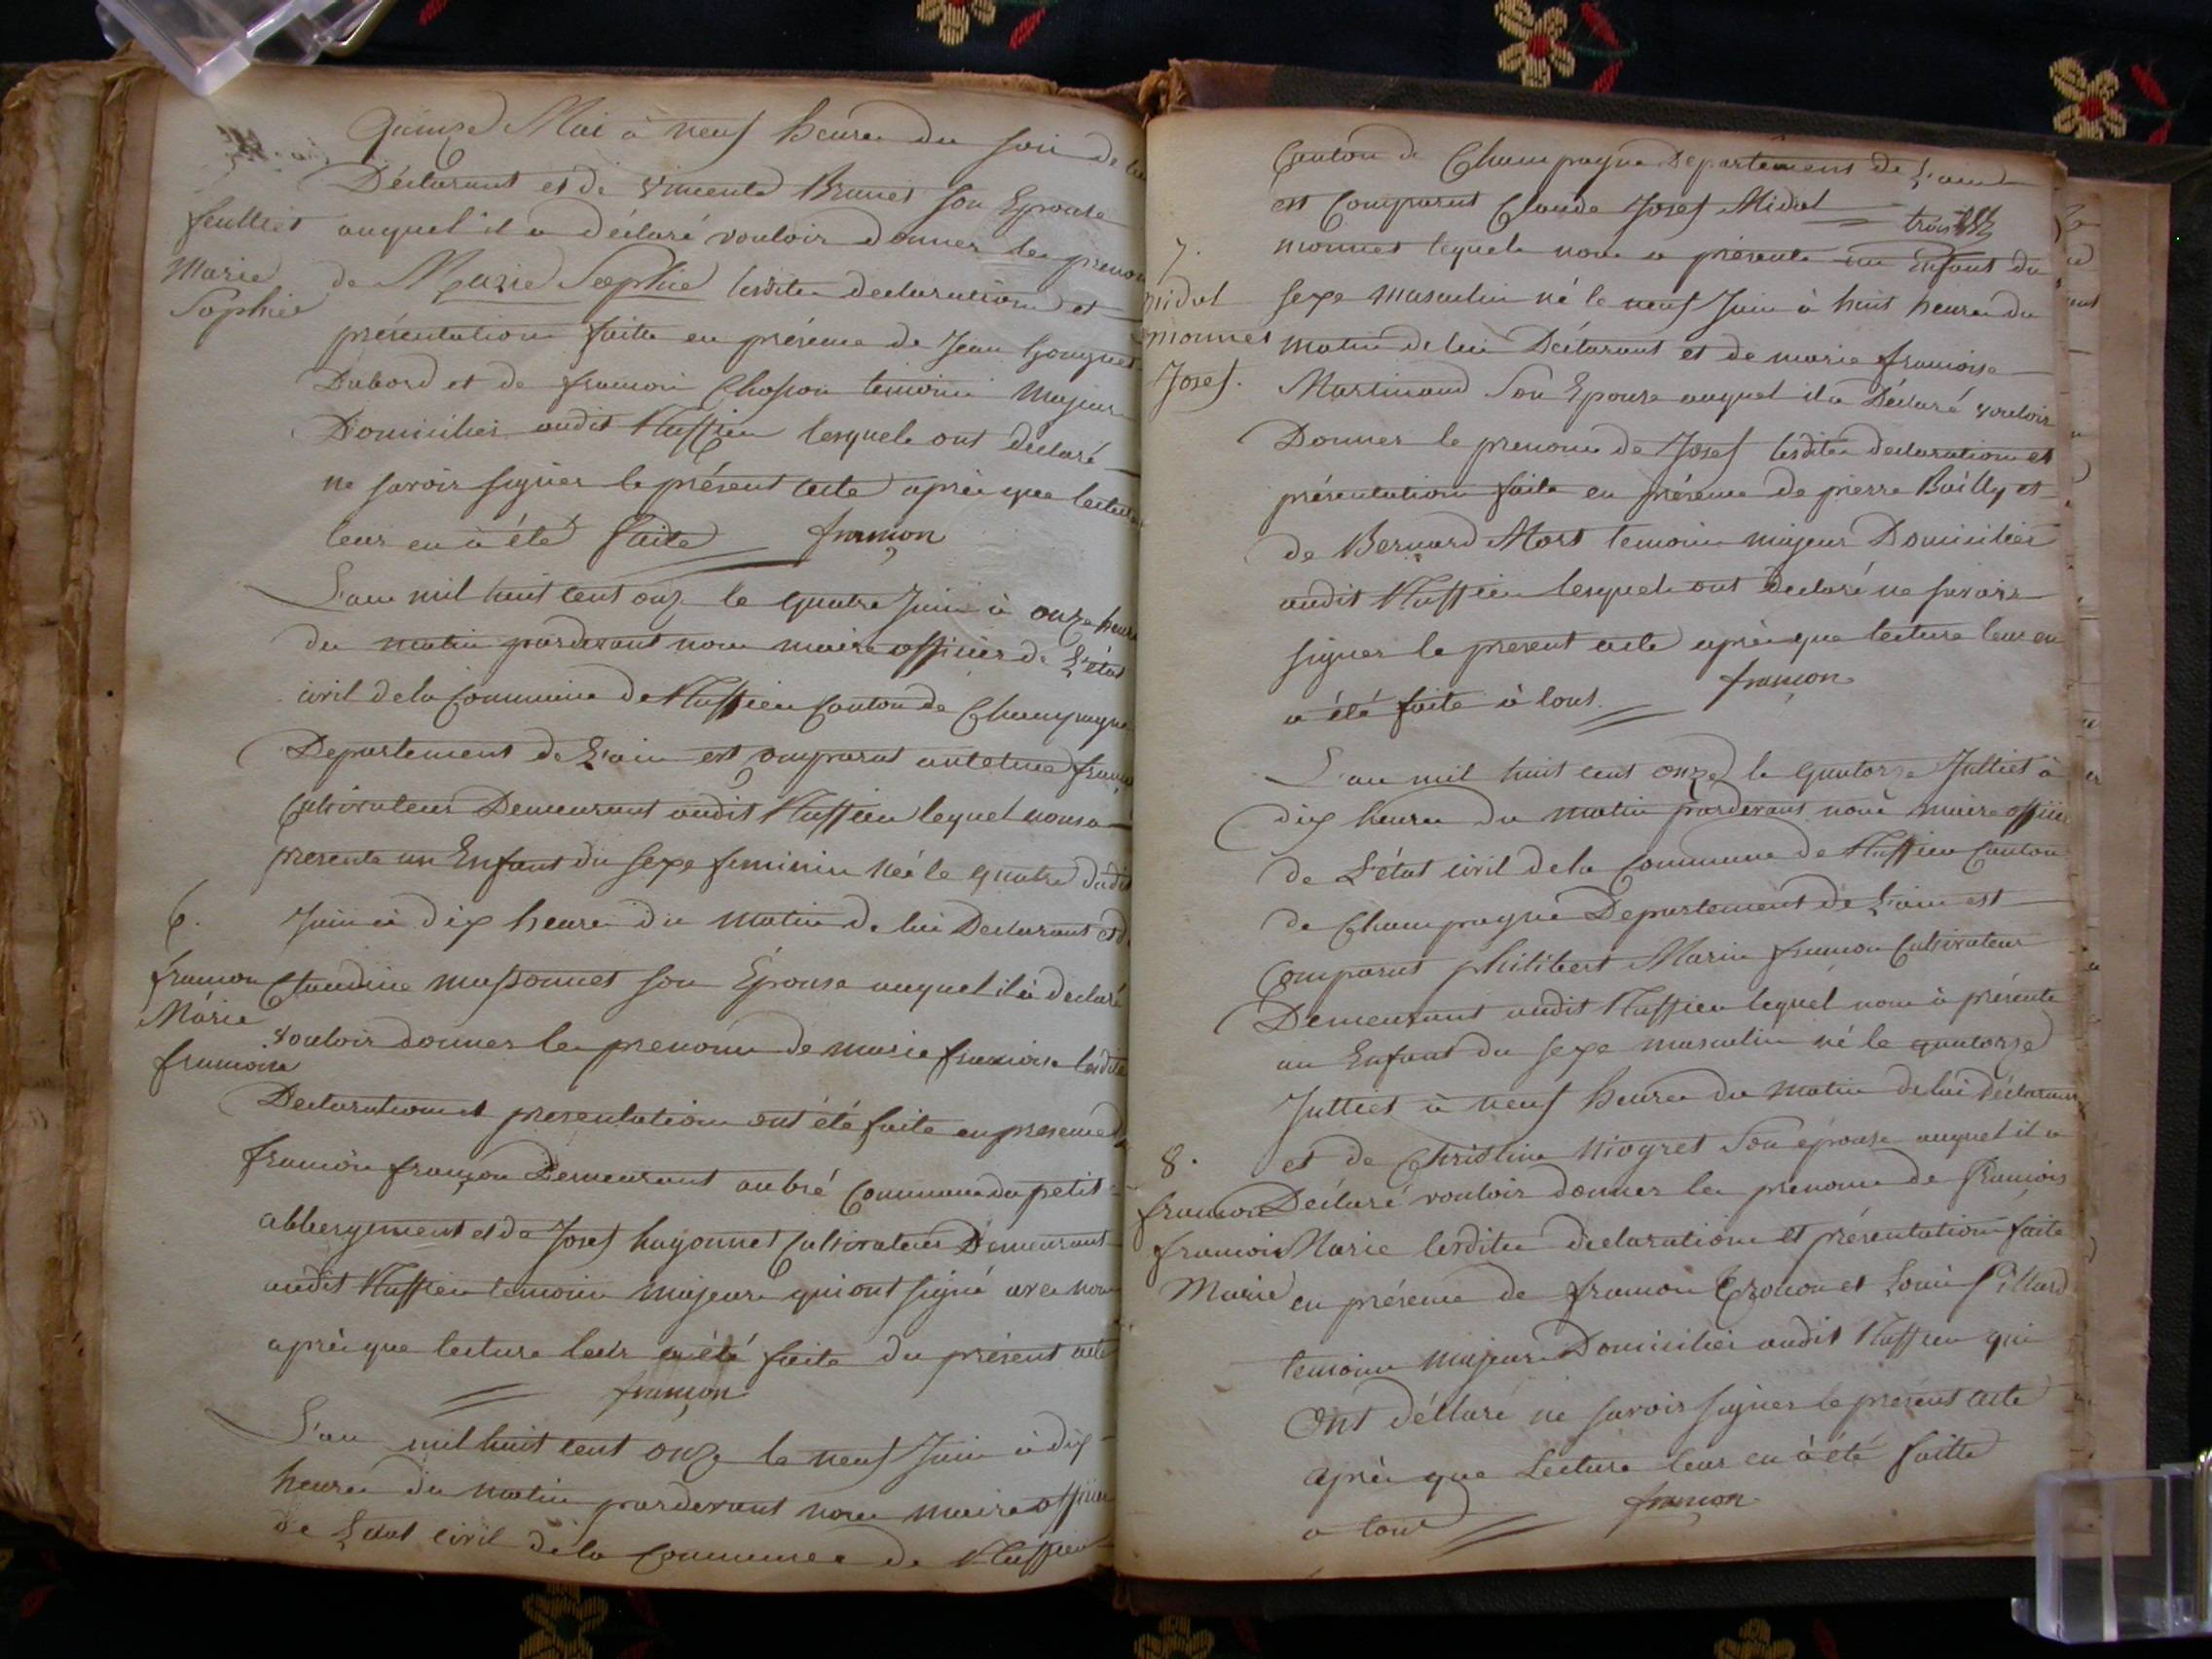 Quinze Mai à neuf heures du soir de lui
Déclarant et de vincente Brunet son Epouse
feulliet
auquel il a déclaré vouloir donner les prenom
Marie
Sophie
de Marie Sophie lesdites declaration et
présentation faite en présence de Jean Gouguet
Dabord et de francois Chosson temoins Majeurs
Domiciliés audit Ruffieu lesquels ont declaré
ne savoir signer le présent acte après que lecture
leur en à été faite françon
L'an mil huit cent onze le quatre Juin à onze heures
du matin pardevant nous maire officier de L'état
civil de la Commune de Ruffieu Canton de Champagne
Departement de L'ain est comparut antelme franç
Cultivateur Demeurant audit Ruffieu lequel nous a
presente un Enfant du sexe feminin née le quatre dudit
6.
Juin à dix heures du matin de lui Declarant et d
françon
Marie
francoise
Claudine massonnet son Épouse auquel il à declaré
vouloir donner les prenoms de marie francoise lesdite
Declaration et presentation ont été faite en presence d
francois françon Demeurant au bré Commune du petit
abbergement et de Josef hugonnet Cultivateur Demeurant
audit Ruffieu temoins majeurs qui ont signé avec nous
après que lecture leur a été faite du présent acte
françon
L'an mil huit cent onze le neuf Juin à dix
heures du matin pardevant nous maire officier
de L'etat civil de la Commune de Ruffieu
Canton de Champagne Departement de L'ain
est Comparut Claude Josef Midol
trois
7.
monnet lequel nous a présenté un Enfant du
midol
monnet
Josef.
sexe masculin né le neuf Juin à huit heures du
matin de lui Déclarant et de marie francoise
Martinand Son Epouse auquel il a Déclaré vouloir
Donner le prenom de Josef lesdites declaration et
présentation faite en présence de pierre Bailly et
de Bernard Mort temoins majeurs Domiciliés
audit Ruffieu lesquels ont declaré ne savoir
signer le present acte après que lecture leur en
a été faite à tous. françon
L'an mil huit cent onze le quatorze Julliet à
dix heures du matin pardevant nous maire officier
de L'état civil de la Commune de Ruffieu Canton
de Champagne Departement de L'ain est
Comparut philibert Marin françon Cultivateur
Demeurant audit Ruffieu lequel nous à présenté
un Enfant du sexe masculin né le quatorze
Julliet à neuf heures du matin de lui déclarant
8.
et de Christine Niogret Son épouse auquel il a
françon
francois
Marie
Déclaré vouloir donner les prenoms de francois
Marie lesdites declaration et présentation faite
en présence de francois et Louis Billard
temoins majeurs Domiciliés audit Ruffieu qui
Ont déclaré ne savoir signer le présent acte
après que Lecture leur en à été faitte
a tous françon